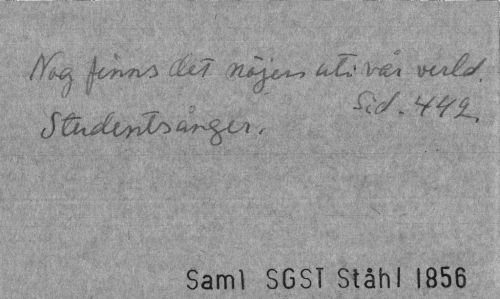 Nog finns det nöjen uti vår verld.
Sid. 442.
Studentsånger.
Saml SGST Ståhl 1856